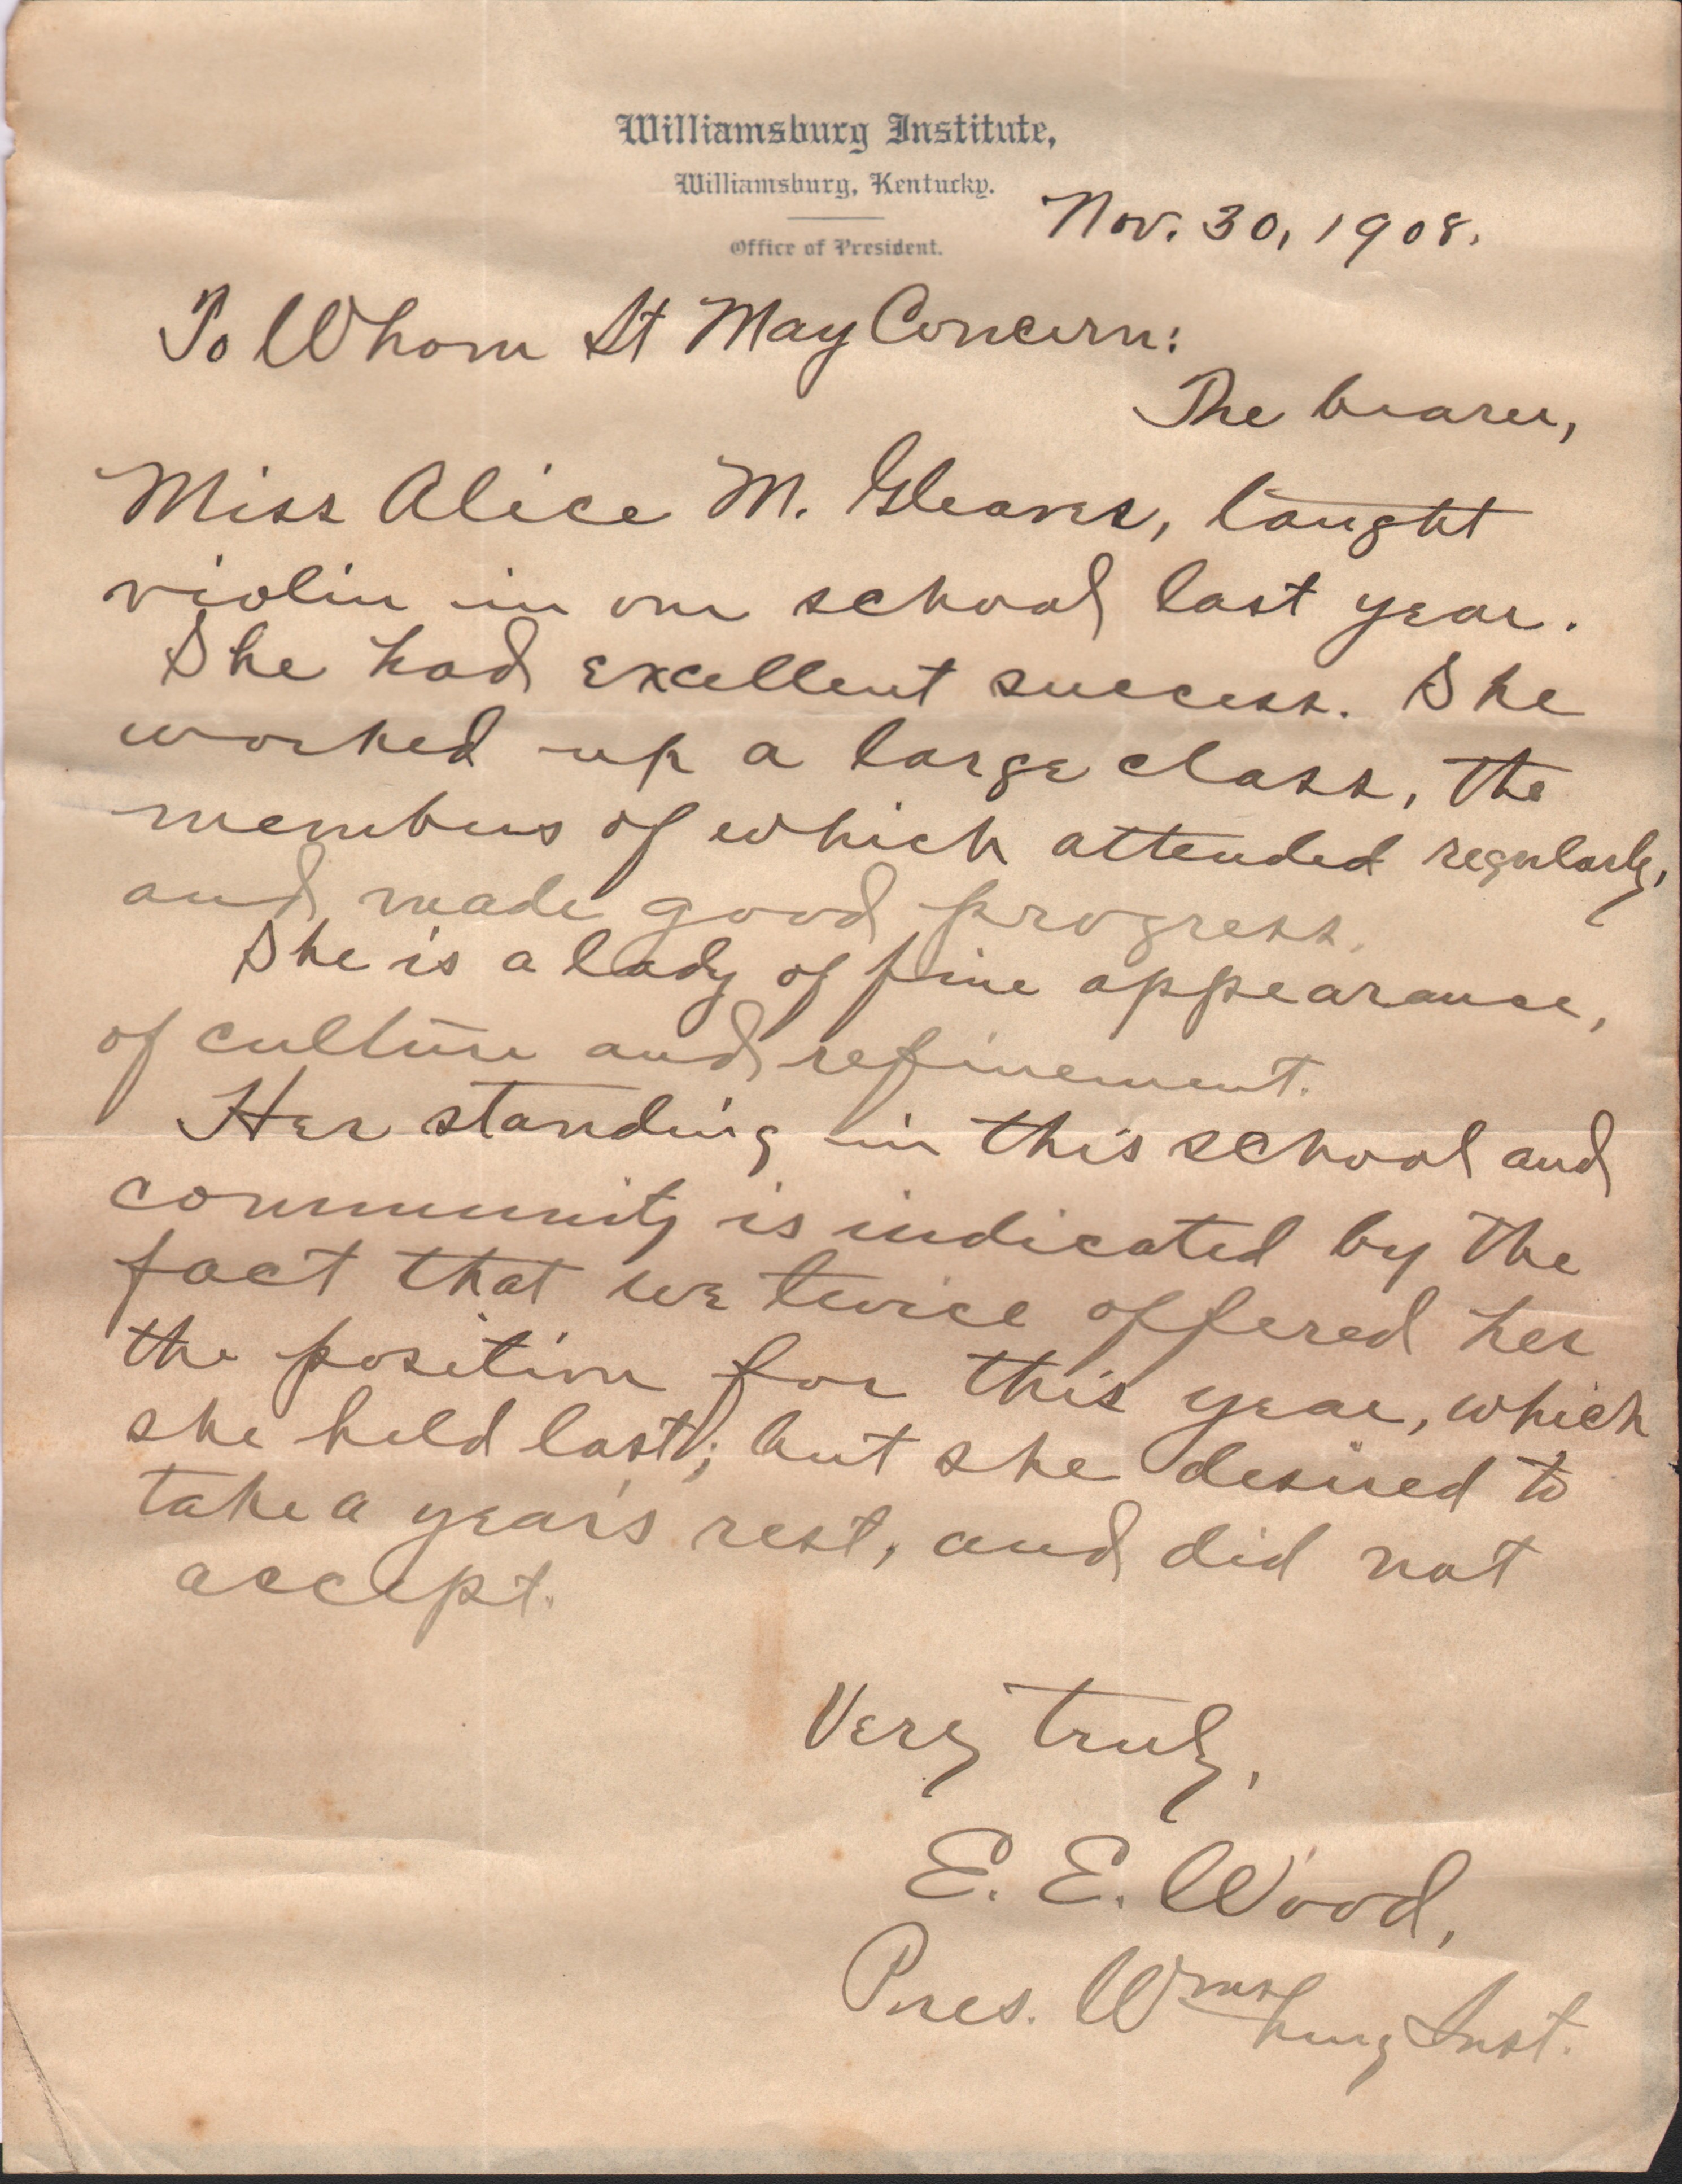 Williamsburg Institute,
Williamsburg, Kentucky.
Office of President.
Nov. 30, 1908.
To Whom It May Concern:
The bearer,
Miss Alice M. Gleaves, taught
violin in our school last year.
She had excellent success. She
worked up a large class, the
members of which attended regularly,
and made good progress.
She is a lady of fine appearance,
of culture and refinement.
Her standing in this school and
community is indicated by the
fact that we twice offered her
the position for this year, which
she held last; but she desired to
take a year's rest, and did not
accept.
Very truly,
E. E. Wood,
Pres. Wmsburg Inst.